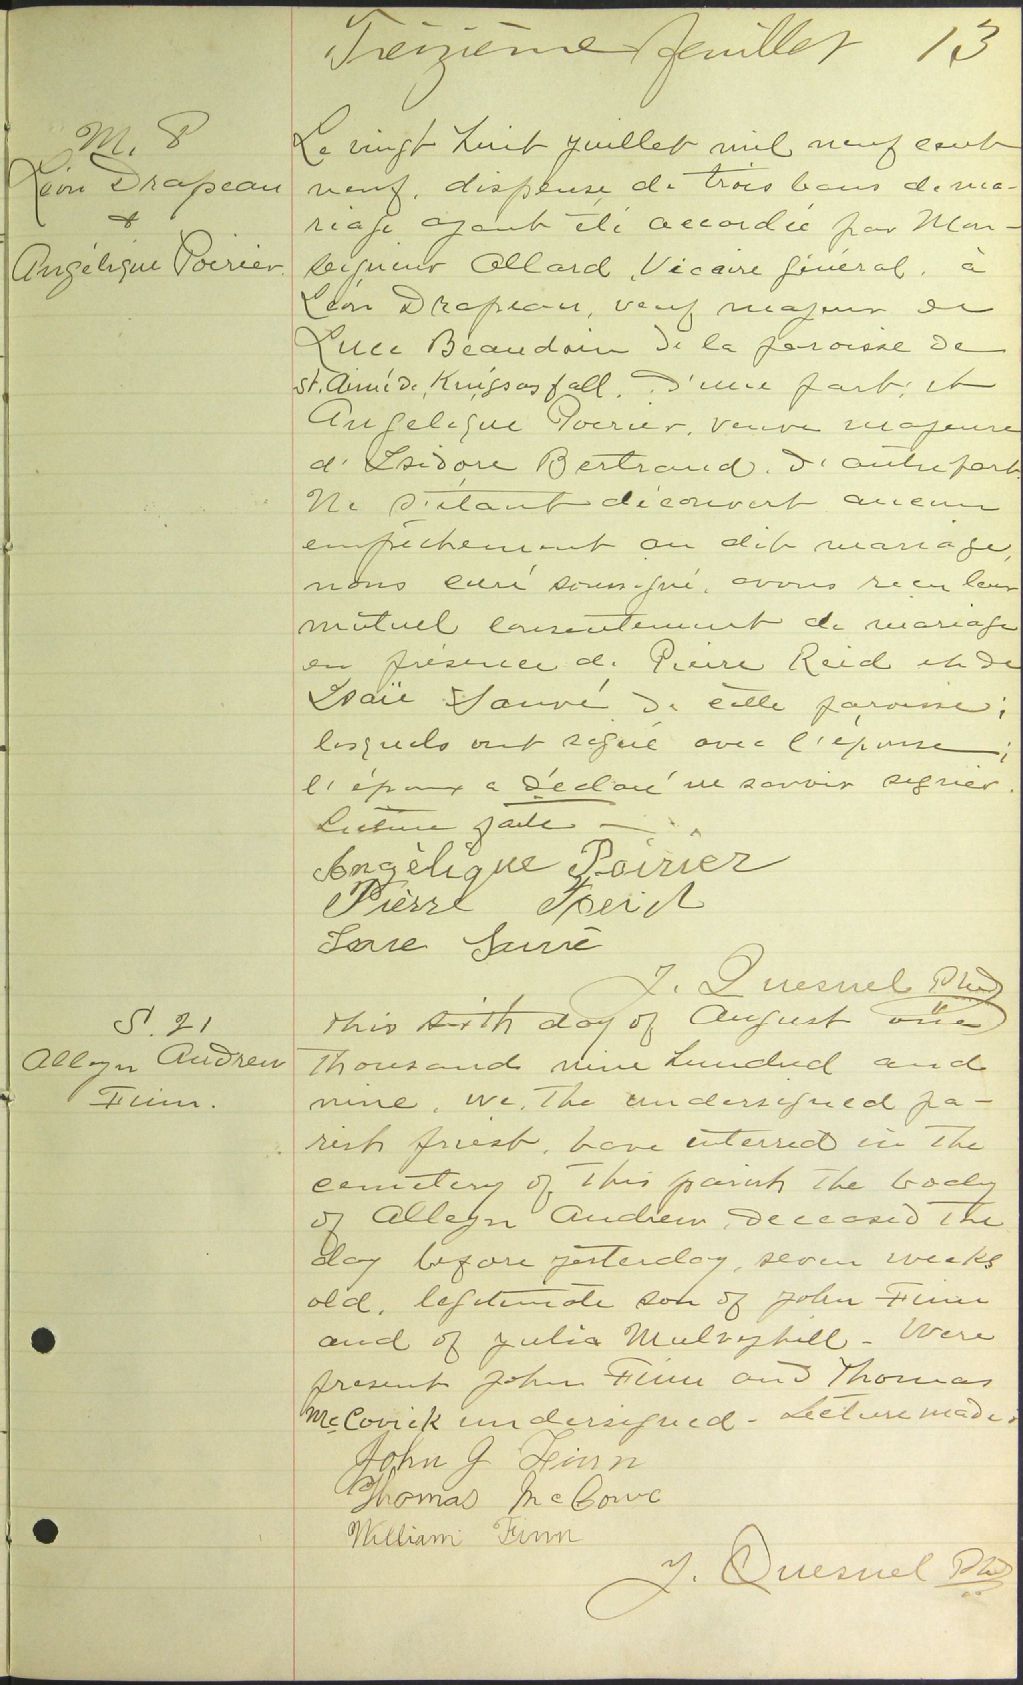 Treizième feuillet 13
M. 8
Léon Drapeau
&
Angélique Poirier.
Le vingt huit juillet mil neuf cent
neuf, dispense de trois bans de ma-
riage ayant été accordée par Mon-
seigneur Allard, Vicaire général, à
Léon Drapeau, veuf majeur de
Luce Beaudoin de la paroisse de
St. Aimé de Kingsey fall, d'une part; et
Angelique Poirier, veuve majeure
d'Isidore Bertrand, d'autre part.
Ne s'étant découvert aucun
empêchement au dit mariage,
nous curé soussigné, avons reçu leur
mutuel consentement de mariage
en présence de Pierre Reid et de
Isaïe Sauvé de cette paroisse;
lesquels ont signé avec l'épouse;
l'époux a déclaré ne savoir signer.
Lecture faite —
Angèlique Poirier
Pièrre Reid
Isaie Sauvé
J. Quesnel Ptre
S. 21
Alleyn Andrew
Finn.
This sixth day of August one
thousand nine hundred and
nine, we, the undersigned pa-
rish priest, have interred in the
cemetery of this parish the body
of Alleyn Andrew, deceased the
day before yesterday, seven weeks
old, legitimate son of John Finn
and of Julia Mulvyhill - Were
present John Finn and Thomas
McCovick undersigned - Lecture made.
John J Finn
Thomas McCowe
William Finn
J. Quesnel Ptre